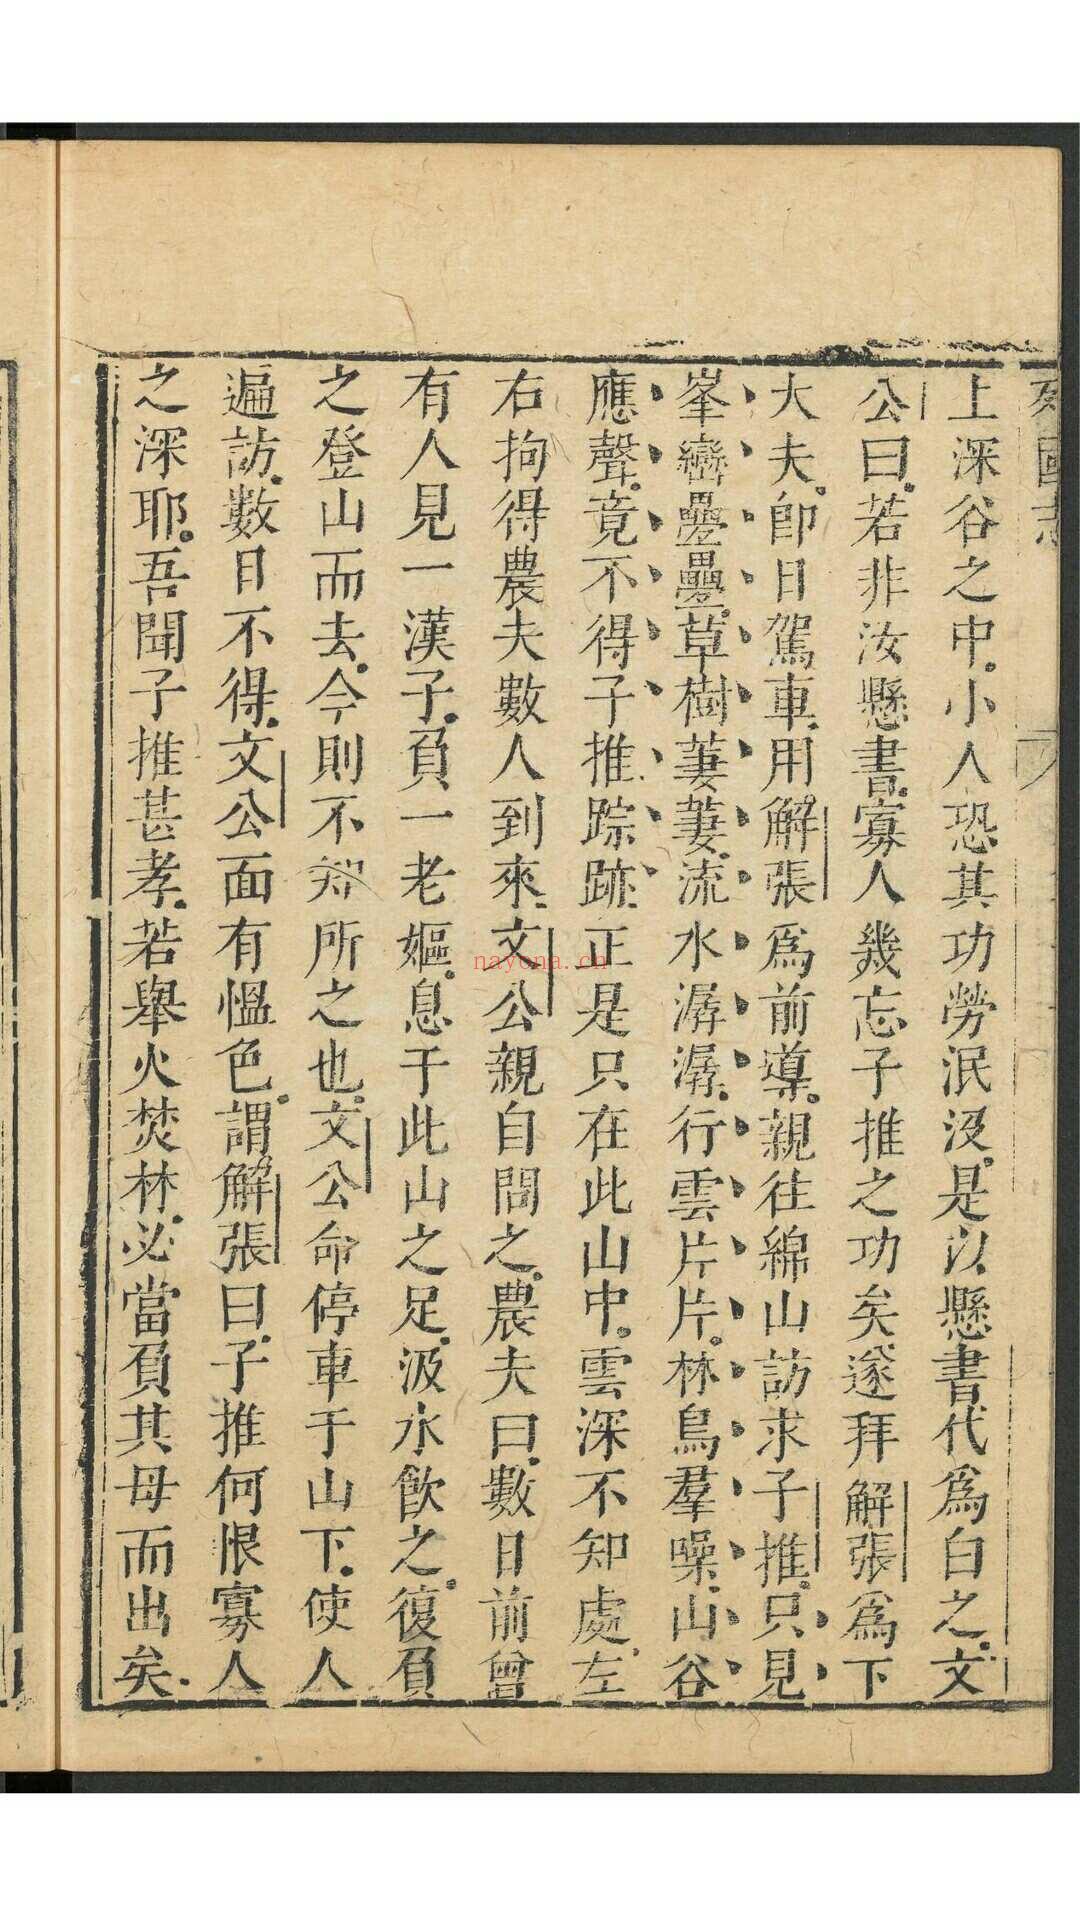 列國志
上深谷之中。小人恐其功勞泯沒。是以懸書代爲白之。文
公曰。若非汝懸書。寡人幾忘子推之功矣。遂拜解張爲下
大夫。卽日駕車。用解張爲前導。親往綿山訪求子推。只見
峯巒疊疊。草樹萋萋。流水潺潺。行雲片片。林鳥羣噪。山谷
應聲。竟不得子推踪跡。正是只在此山中。雲深不知處。左
右拘得農夫數人到來。文公親自問之。農夫曰。數日前曾
有人見一漢子。負一老嫗。息于此山之足。汲水飮之。復負
之登山而去。今則不知所之也。文公命停車于山下。使人
遍訪。數日不得。文公面有慍色。謂解張曰。子推何恨寡人
之深耶。吾聞子推甚孝。若舉火焚林。必當負其母而出矣。
nayona.cn